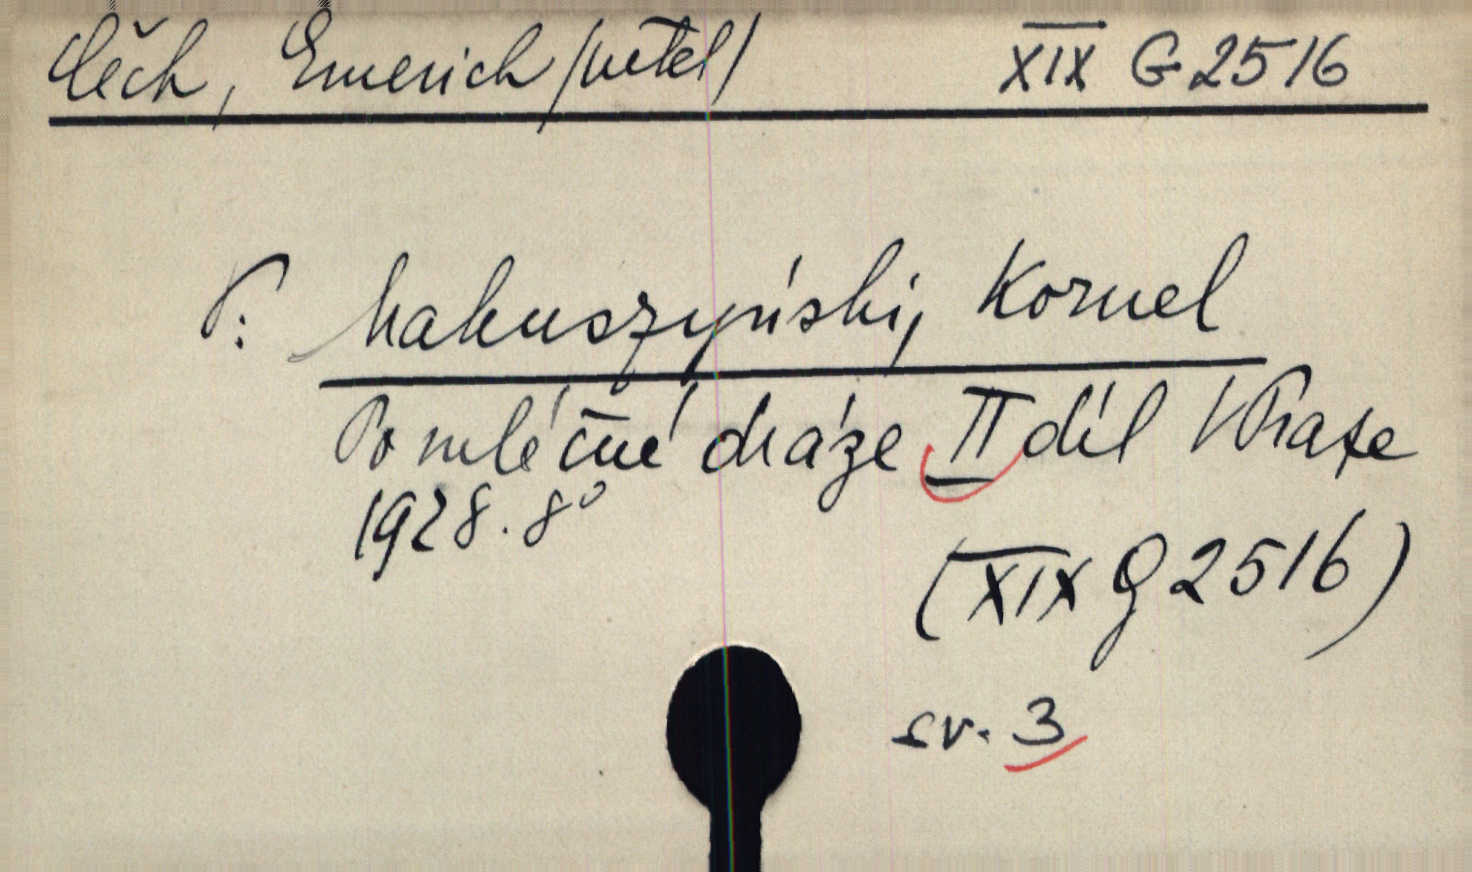 Čech, Emerich /překl/ XIX G 2516
V: Makuszyński, Kornel
Po mléčné dráze II díl V Praze
1928. 8°
(XIX G 2516)
sv. 3